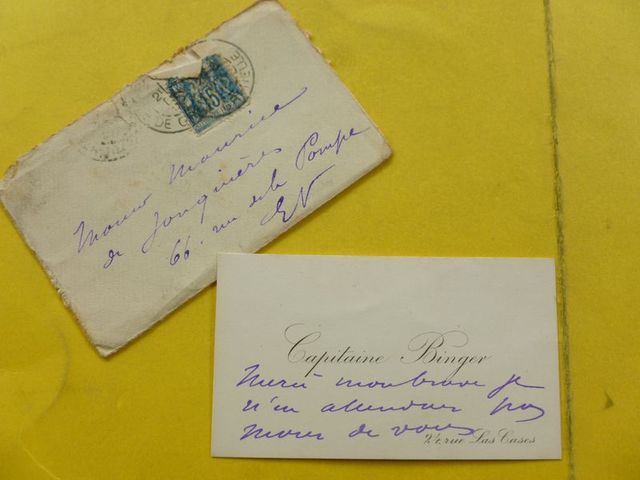 Monsr Maurice
de Jonquières
66. rue de la Pompe
EV
15
Capitaine Binger
Merci mon brave je
n'en attendais pas
moins de vous
24, rue Las Cases